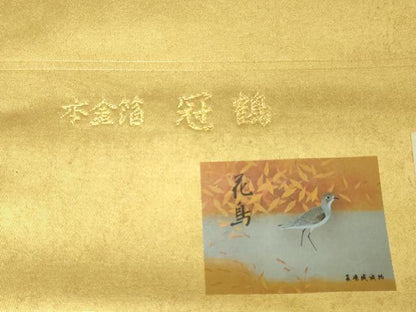 本金箔 冠鶴
花鳥